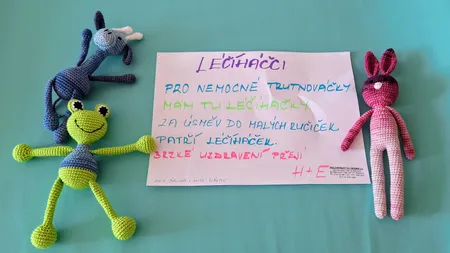 LÉČÍHÁČCI
PRO NEMOCNÉ TRUTNOVÁČKY
MÁM TU LÉČÍHÁČKY.
ZA ÚSMĚV DO MALÝCH RUČIČEK
PATŘÍ LÉČÍHÁČEK.
BRZKÉ UZDRAVENÍ PŘEJÍ
H + E